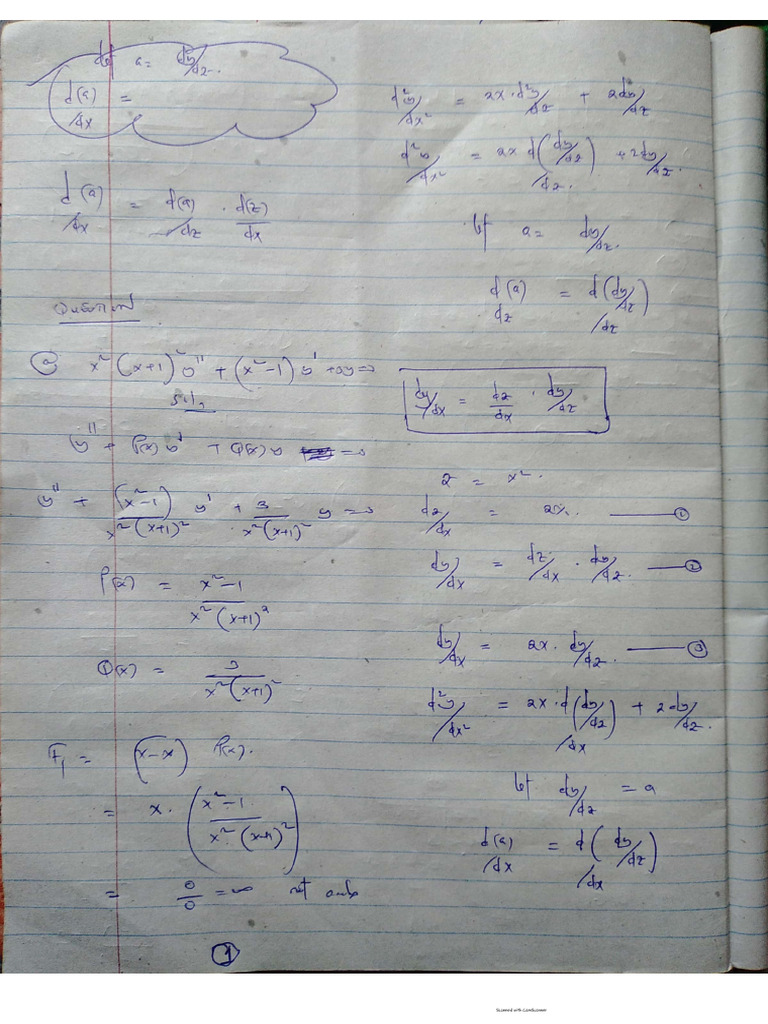 let a = dy/dz.
d(a)/dx =
d(a)/dx = d(a)/dz · d(z)/dx
Question
x²(x+1)²y'' + (x²-1)y' + 3y=0
Soln
y'' + P(x)y' + Q(x)y =0
y'' + (x²-1)/x²(x+1)² y' + 3/x²(x+1)² y =0
P(x) = x²-1/x²(x+1)²
Q(x) = 3/x²(x+1)²
F₁ = (x-x) P(x).
= x · (x²-1/x²(x+1)²)
= 0/0 = ∞ not
1
d²y/dx² = 2x · d²y/dz + 2dy/dz
d²y/dx² = 2x d(dy/dz)/dz. + 2dy/dz.
let a = dy/dz.
d(a)/dz = d(dy/dz)/dz
dy/dx = dz/dx · dy/dz
z = x².
dz/dx = 2x. — ①
dy/dx = dz/dx · dy/dz. — ②
dy/dx = 2x · dy/dz. — ③
d²y/dx² = 2x · d(dy/dz)/dx + 2dy/dz.
let dy/dz = a
d(a)/dx = d(dy/dz)/dx
Scanned with CamScanner